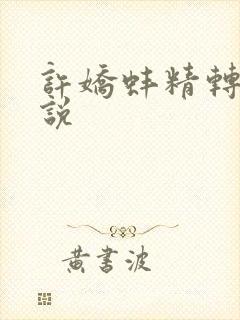 許嬌蚌精轉
說
黃書波